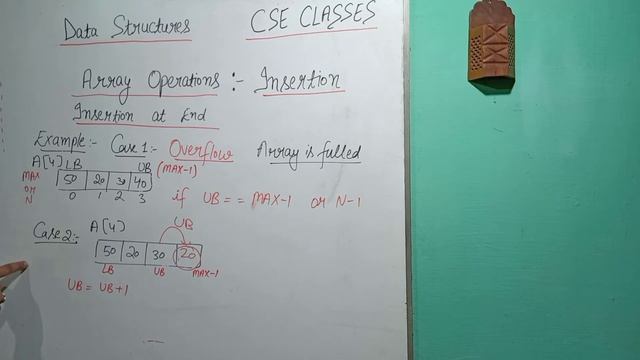 Data Structures CSE CLASSES
Array Operations :- Insertion
Insertion at End
Example:- Case 1:- Overflow Array is fulled
A[4] LB UB (MAX-1)
MAX OR N
50 20 30 40
0 1 2 3
if UB == MAX-1 or N-1
Case 2:- A[4] UB
50 20 30 20
LB UB MAX-1
UB = UB+1